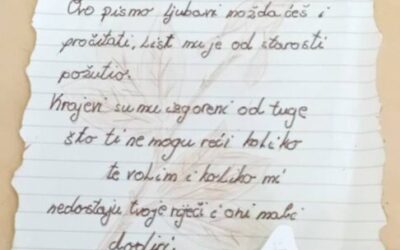 Ovo pismo ljubavi možda ćeš i
pročitati, list mu je od starosti
požutio.
Krajevi su mu izgoreni od tuge
što ti ne mogu reći koliko
te volim i koliko mi
nedostaju tvoje riječi i oni mali
dodiri.